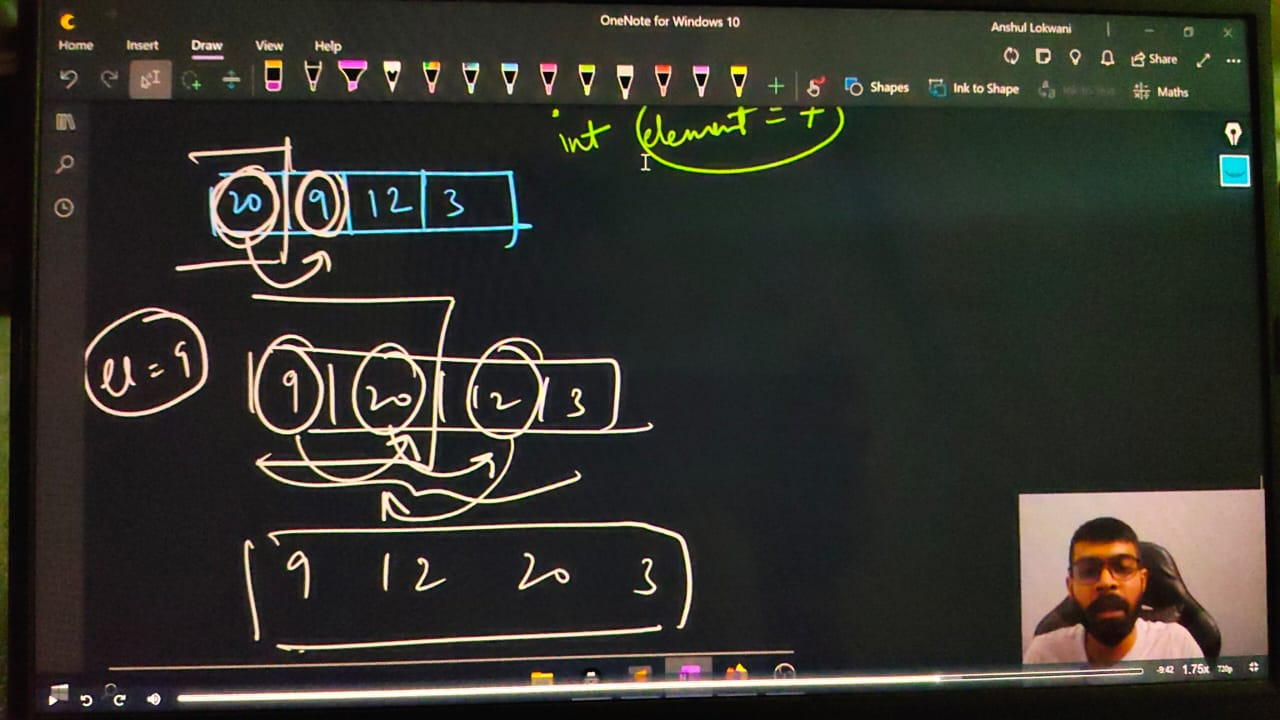 OneNote for Windows 10
Anshul Lokwani
Home Insert Draw View Help
Share
Shapes Ink to Shape Maths
int element =
20 9 12 3
el = 9
9 20 12 3
9 12 20 3
-9:42 1.75x 720p